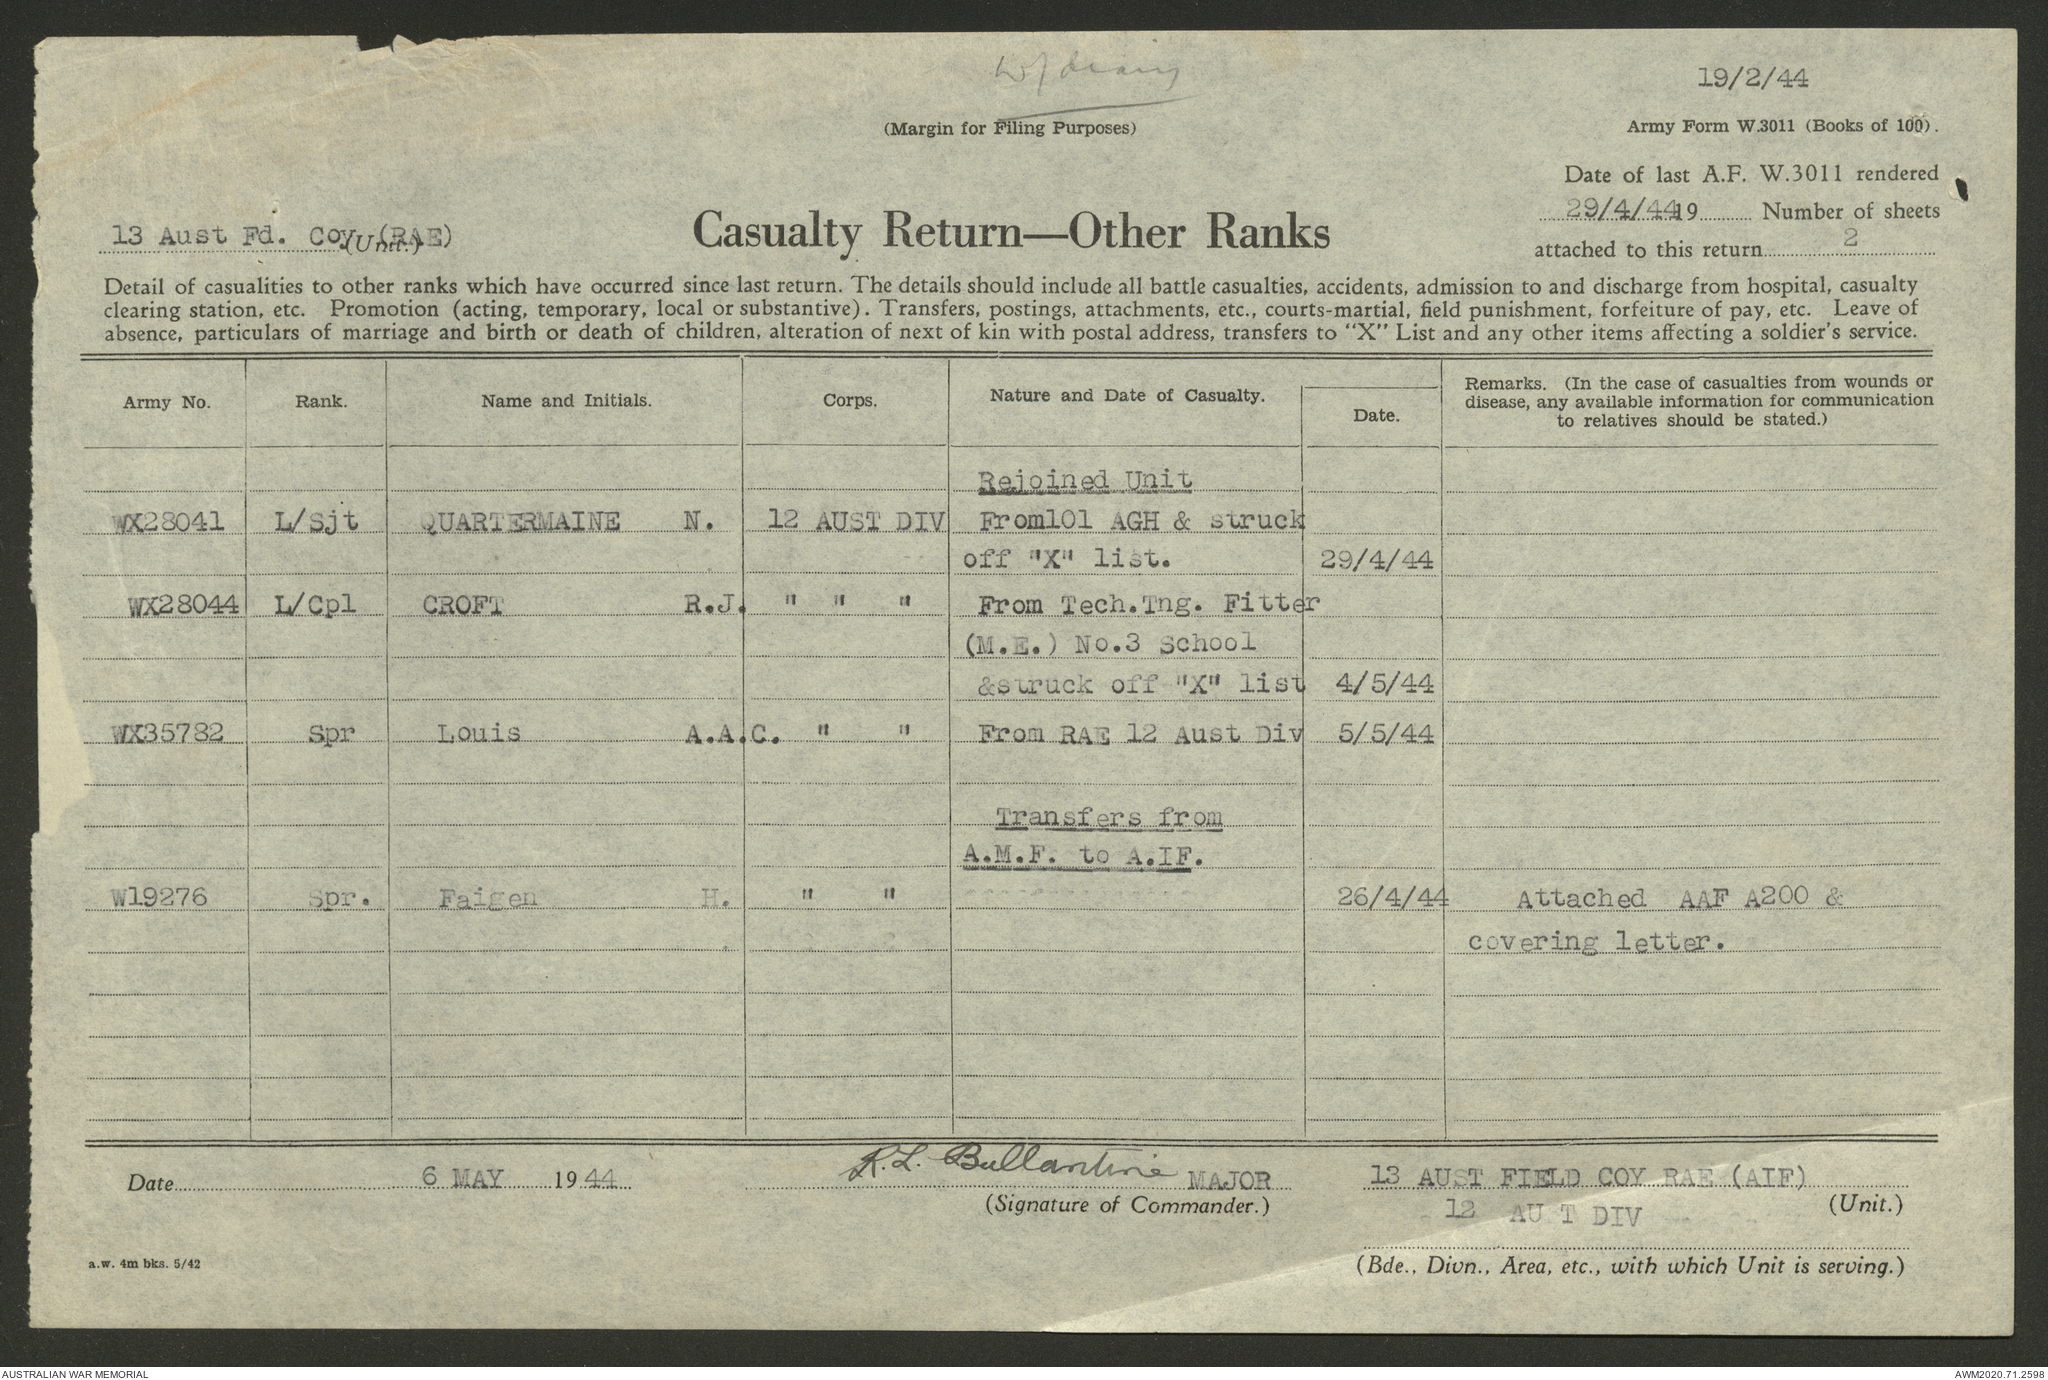 W/diary
19/2/44
(Margin for Filing Purposes)
Army Form W.3011 (Books of 100).
Date of last A.F. W.3011 rendered
29/4/44 19 Number of sheets
attached to this return 2
13 Aust Fd. Coy (RAE)
(Unit.)
Casualty Return—Other Ranks
Detail of casualities to other ranks which have occurred since last return. The details should include all battle casualties, accidents, admission to and discharge from hospital, casualty
clearing station, etc. Promotion (acting, temporary, local or substantive). Transfers, postings, attachments, etc., courts-martial, field punishment, forfeiture of pay, etc. Leave of
absence, particulars of marriage and birth or death of children, alteration of next of kin with postal address, transfers to "X" List and any other items affecting a soldier's service.
Army No. Rank. Name and Initials. Corps. Nature and Date of Casualty. Date. Remarks. (In the case of casualties from wounds or
disease, any available information for communication
to relatives should be stated.)
Rejoined Unit
WX28041 L/Sjt QUARTERMAINE N. 12 AUST DIV From101 AGH & struck
off "X" list. 29/4/44
WX28044 L/Cpl CROFT R.J. " " " From Tech.Tng. Fitter
(M.E.) No.3 School
&struck off "X" list 4/5/44
WX35782 Spr Louis A.A.C. " " From RAE 12 Aust Div 5/5/44
Transfers from
A.M.F. to A.IF.
W19276 Spr. Faigen H. " " 26/4/44 Attached AAF A200 &
covering letter.
Date 6 MAY 1944 R.L. Bullantine MAJOR 13 AUST FIELD COY RAE (AIF)
(Signature of Commander.) (Unit.)
12 AU T DIV
a.w. 4m bks. 5/42
(Bde., Divn., Area, etc., with which Unit is serving.)
AUSTRALIAN WAR MEMORIAL AWM2020.71.2598